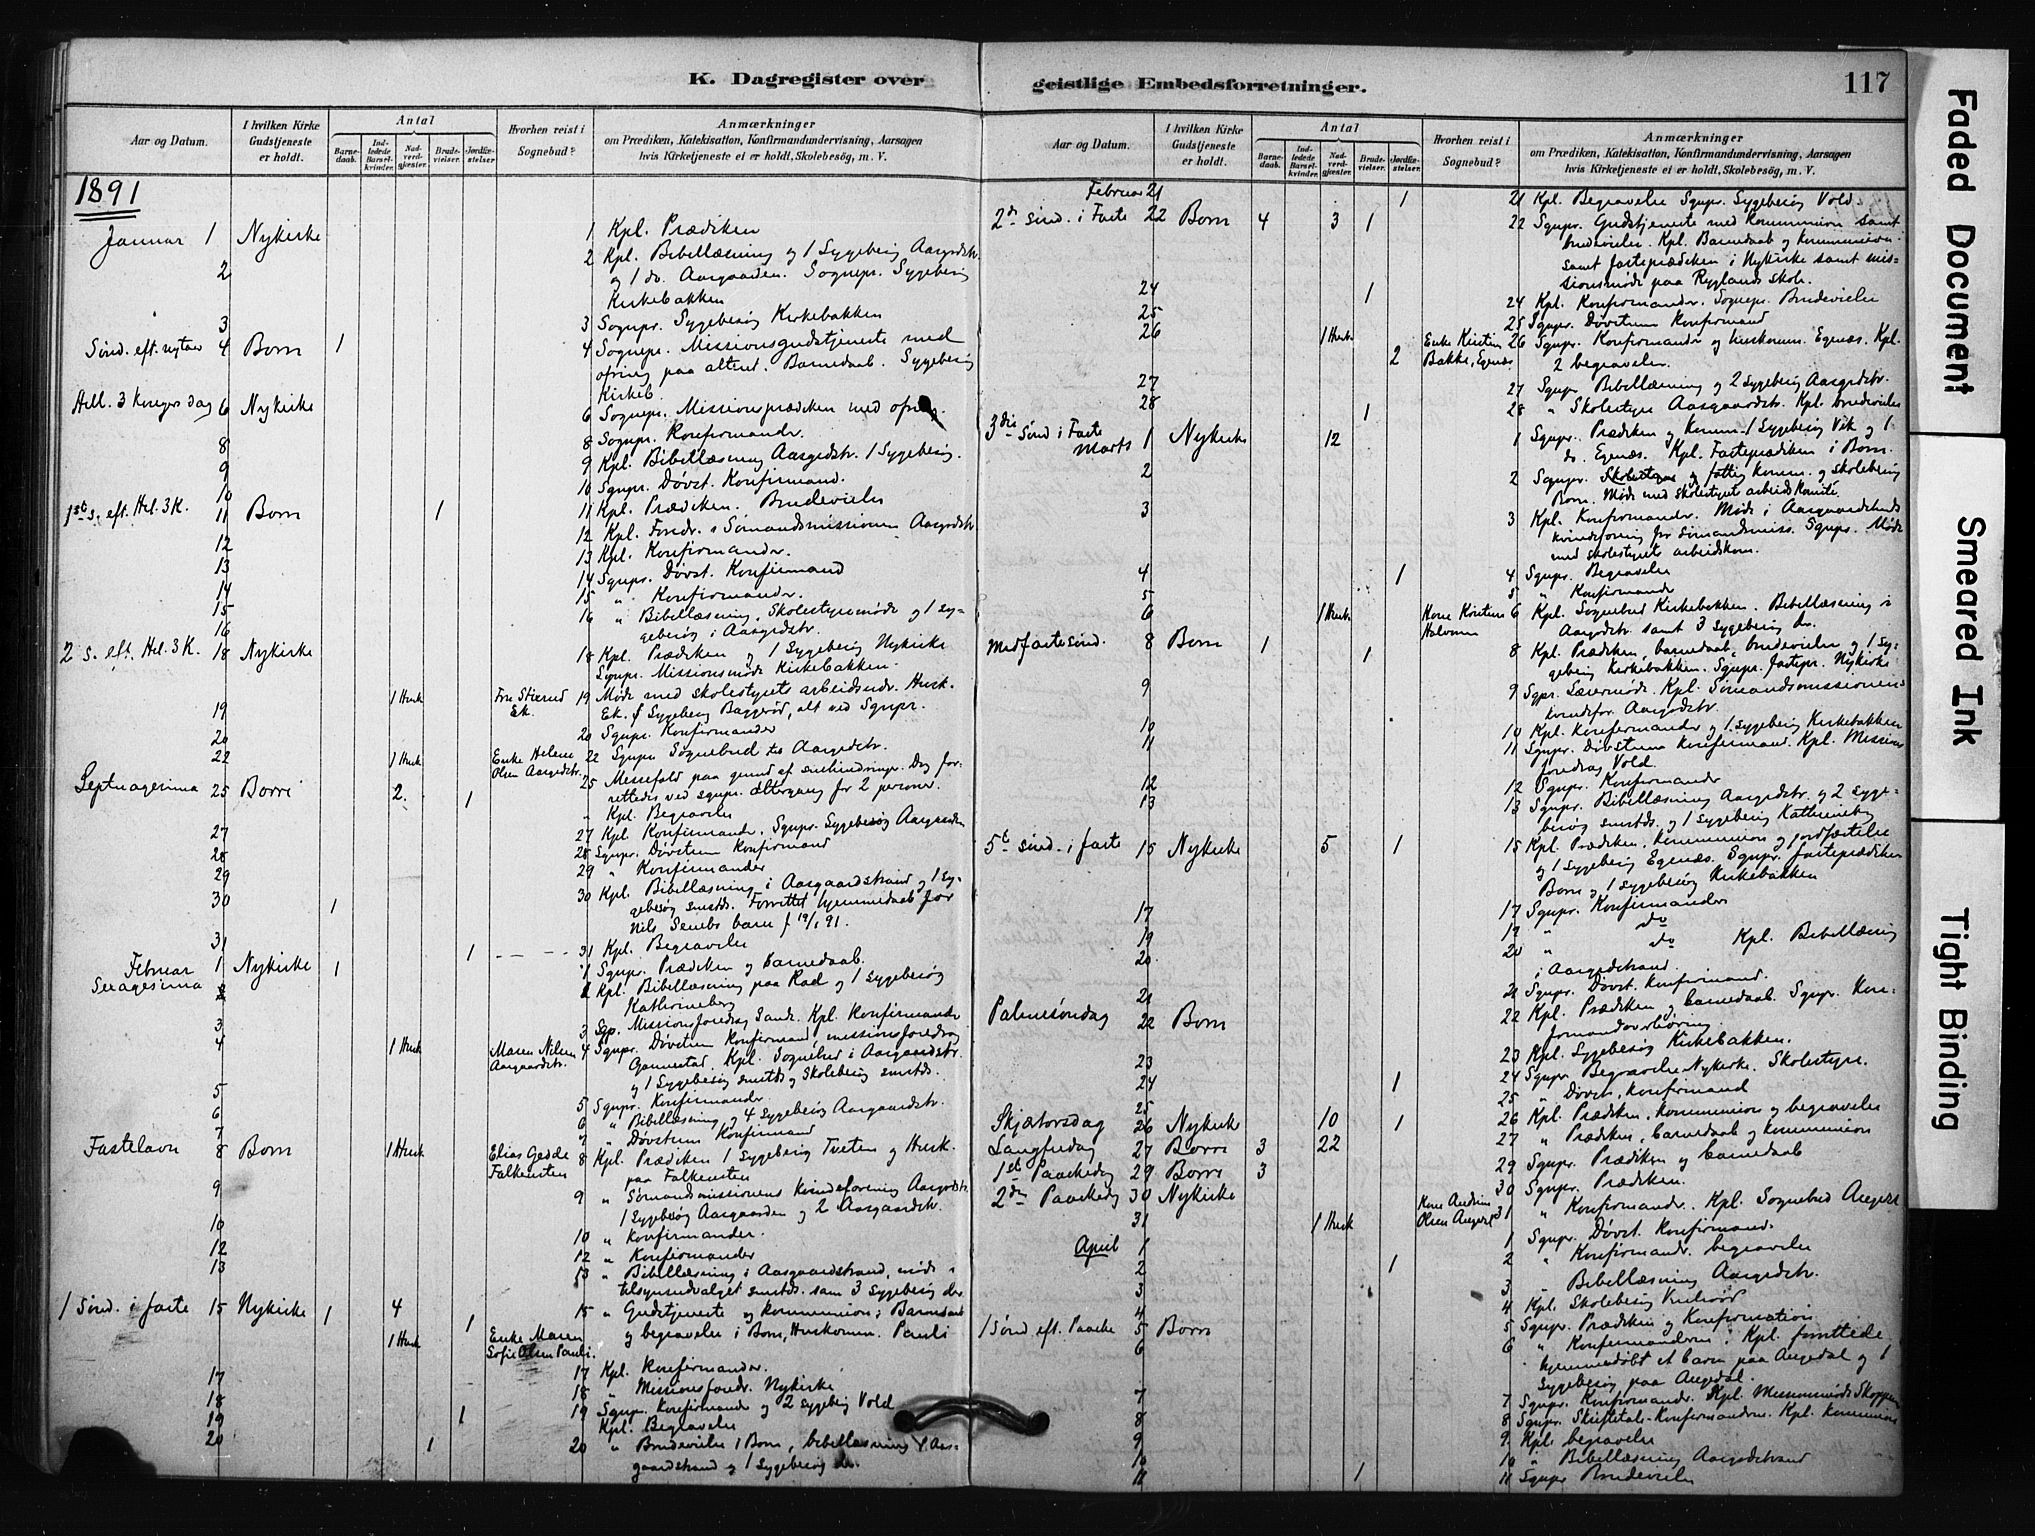 K. Dagregister over geistlige Embedsforretninger.
117
Aar og Datum.
I hvilken Kirke Gudstjeneste er holdt.
Antal
Barne- daab.
Ind- ledede Barsel- kvinder.
Nad- verd- gjæster.
Brude- vielser.
Jordfæ- stelser
Hvorhen reist i Sognebud?
Anmærkninger
om Prædiken, Katekisation, Konfirmandundervisning, Aarsagen
hvis Kirketjeneste ei er holdt, Skolebesög, m. V.
1891
Januar 1 Nykirke 1 Kpl. Prædiken
2 2 Kpl. Bibellæsning og 1 Sygebesøg Aasgdstr.
og 1 do. Aasgaarden. Sognepr. Sygebesøg
Kirkebakken
3 3 Sognpr. Sygebesøg Kirkebakken
Sønd. eft. nytaar 4 Borre 1 4 Sognepr. Missionsgudstjeneste med
ofring paa alteret. Barnedaab. Sygebesøg
Kirkeb.
Hell. 3 Kongers dag 6 Nykirke 6 Sognepr. Missionsprædiken med ofring.
8 8 Sognpr. Konfirmander.
9 9 Kpl. Bibellæsning Aasgdstr. 1 Sygebesøg.
10 10 Sgnpr. Døvst. Konfirmand.
1ste s. eft. Hel. 3 K. 11 Borre 1 11 Kpl. Prædiken. Brudevielse
12 12 Kpl. Foredr. i Sømandsmissionen Aasgdstr.
13 13 Kpl. Konfirmander.
14 14 Sgnpr. Døvst. Konfirmand
15 15 " Konfirmander.
16 16 " Bibellæsning, Skolestyremøde og 1 sy-
gebesøg i Aasgdstr.
2 s. eft. Hel. 3 K. 18 Nykirke 18 Kpl. Prædiken og 1 Sygebesøg Nykirke
Sgnpr. Missionsmøde Kirkebakken.
19 1 Husk 19 Møde med skolestyrets arbeidsudv. Husk.
Ek. & Sygebesøg Baggerød, alt ved Sgnpr.
20 20 Sgnpr. Konfirmander
22 1 Husk Enke Helene Olsen Aasgdstr. 22 Sgnpr. Sognebud til Aasgdstr.
Septuagesima 25 Borre 2 1 25 Messefald paa grund af snehindringer. Dog for-
rettedes ved sgnpr. altergang for 2 personer.
" Kpl. Begravelse
27 27 Kpl. Konfirmander. Sgnpr. Sygebesøg Aasgaarden
28 28 Sgnpr. Døvstum Konfirmand
29 29 " Konfirmander
30 1 30 Kpl. Bibellæsning i Aasgaardstrand og 1 Sy-
gebesøg smstds. Forrettet hjemmedaab for
31 1 31 Kpl. Begravelse
Februar 1 Nykirke 1 1 Sgnpr. Prædiken og barnedaab.
Sexagesima
Kpl. Bibellæsning paa Rød og 1 Sygebesøg
Katherineberg
3 3 Sgp. Missionsforedrag Sande. Kpl. Konfirmander
4 1 Husk Maren Nilsen Aasgaardstr. 4 Sgnpr. Døvstum Konfirmand, missionsforedrag
Gannestad. Kpl. Sognebud i Aasgaardstr.
og 1 Sygebesøg smstds og Skolebesøg smstds.
5 5 Sgnpr. Konfirmander
6 6 " Bibellæsning og 4 sygebesøg Aasgaardstr.
7 7 " Døvstum Konfirmand
Fastelavn 8 Borre 1 Husk Elias Gedde Falkensten 8 Kpl. Prædiken 1 Sygebesøg Tveten og Husk.
paa Falkensten
9 9 " Sømandsmissionens Kvindeforening Aasgdstr.
1 Sygebesøg Aasgaarden og 2 Aasgaardstr.
10 10 " Konfirmander.
12 12 " Konfirmander
13 13 " Bibellæsning i Aasgaardstrand, møde i
tilsynsudvalget smstds. samt 3 Sygebesøg der
1 Sønd. i faste 15 Nykirke 1 4 1 15 " Gudstjeneste og kommunion; Barnedaab
1 Husk Enke Maren Sofie Olsen Pauli. og begravelse i Borre, Huskomm. Pauli
17 17 Kpl. Konfirmander.
18 18 " Missionsforedr. Nykirke
19 1 19 Sgnpr. Konfirmander og 2 sygebesøg Vold
Kpl. Begravelse
20 1 20 " Brudevielse i Borre, bibellæsning i Aas-
gaardstrand og 1 Sygebesøg do.
Aar og Datum.
I hvilken Kirke Gudstjeneste er holdt.
Antal
Barne- daab.
Ind- ledede Barsel- kvinder.
Nad- verd- gjæster.
Brude- vielser.
Jordfæ- stelser.
Hvorhen reist i Sognebud?
Anmærkninger
om Prædiken, Katekisation, Konfirmandundervisning, Aarsagen
hvis Kirketjeneste ei er holdt, Skolebesög, m. V.
Februar 21 1 21 Kpl. Begravelse Sgnpr. Sygebesøg Vold.
2den sønd. i Faste 22 Borre 4 3 1 22 Sgnpr. Gudstjeneste med kommunion samt
brudevielse. Kpl. Barnedaab og kommunion
samt fasteprædiken i Nykirke samt mis-
sionsmøde paa Ryglands skole.
24 1 24 Kpl. Konfirmander. Sognepr. Brudevielse
25 25 Sgnpr. Døvstum Konfirmand
26 1 Husk. 2 Enke Kirstine Bakke, Egenæs 26 Sgnpr. Konfirmander og huskomm. Egenæs. Kpl.
2 begravelser.
27 27 Sgnpr Bibellæsning og 2 Sygebesøg Aasgdstr.
28 1 28 " Skolestyre Aasgaardstr. Kpl. brudevielse
3die Sønd i Faste
Marts 1 Nykirke 12 1 Sgnpr. Prædiken og Komm. 1 Sygebesøg Vik og 1
do. Egenæs. Kpl. Fasteprædiken i Borre.
2 2 Sgnpr. Skolestyre og fattigkomm. og skolebesøg
Borre. Møde med skolestyrets arbeidskomité.
3 3 Kpl. Konfirmander. Møde i Aasgaardstrands
kvindeforening for sømandsmiss. Sgnpr. Møde
med skolestyrets arbeidskom.
4 1 4 Sgnpr. Begravelse
5 5 " Konfirmander
6 1 Husk. 6 Kpl. Sognebud Kirkebakken. Bibellæsning i
Aasgdstr. samt 3 sygebesøg do.
Midfastesønd. 8 Borre 1 1 8 Kpl. Prædiken, barnedaab, brudevielse og 1 Sy-
gebesøg Kirkebakken. Sgnpr. fastepr. Nykirke
9 9 Sgpr. Lærermøde. Kpl. Sømandsmissionens
kvindefor. Aasgdstr.
10 10 Kpl. Konfirmander og 1 sygebesøg Kirkebakken
11 11 Sgnpr. Døvstum Konfirmand. Kpl. Missions-
foredrag Vold.
12 12 Sgnpr. Konfirmander
13 13 Sgnpr. Bibellæsning Aasgdstr. og 2 Syge-
besøg smstds. og 1 sygebesøg Kathrineberg
5te sønd. i faste 15 Nykirke 5 1 15 Kpl. Prædiken, kommunion og jordfæstelse
og 1 sygebesøg Egenæs. Sgnpr. fasteprædiken
Borre og 1 sygebesøg Kirkebakken
17 17 Sgnpr. Konfirmander
19 19 " do
20 20 " do Kpl. Bibellæsning
i Aasgdstrand.
21 21 Sgnpr. Døvst. Konfirmand.
Palmesøndag 22 Borre 22 Kpl. Prædiken og barnedaab. Sgnpr. Kon-
firmandoverhøring
23 23 Kpl. Sygebesøg Kirkebakken.
24 1 24 Sgnpr Begravelse Nykirke. Skolestyre.
25 25 " Døvst. Konfirmand
Skjærtorsdag 26 Nykirke 10 1 26 Kpl. Prædiken, kommunion og begravelse
Langfredag 27 Borre 3 22 27 " Prædiken, barnedaab og kommunion
1ste Paaskedag 29 Borre 3 29 Sgnpr. Prædiken og barnedaab
2den Paaskedag 30 Nykirke 30 Sgnpr. Prædiken.
31 1 Husk 31 " Konfirmander. Kpl. Sognebud Angedal
April 1 1 Sgnpr. Døvst. Konfirmand.
2 1 2 " Konfirmander. begravelse
3 3 " Bibellæsning Aasgdstr.
4 4 Kpl. Skolebesøg
1 Sønd eft. Paaske 5 Borre 5 Sgnpr. Prædiken og Konfirmation
6 6 " Konfirmanderne. Kpl. forrettede
hjemmedøbt et barn paa Angedal og 1
sygebesøg paa Angedal.
7 7 Sgnpr. Konfirmander. Kpl. Missionsmøde Skoppum
8 8 Sgnpr. Skriftetale-Konfirmanderne. Kpl. kommunion
9 9 Kpl. begravelse
10 10 " Bibellæsning Aasgdstrand
11 1 11 Sgnpr Brudevielse
Faded Document
Smeared Ink
Tight Binding